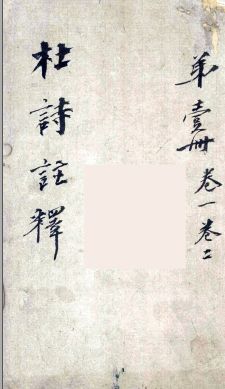 弟壹册 卷一卷二
杜詩註釋